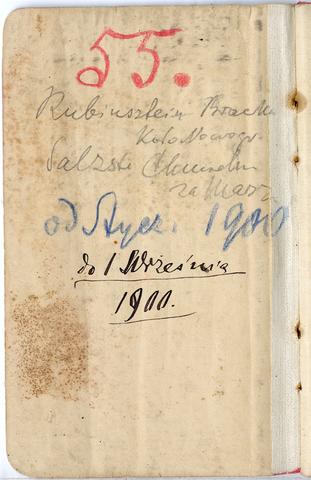 55.
Rubinsztein Brack
Koło Nowogr.
Salzste Chmieln
za Marsz
od Stycz. 1900
do 1 Września
1900.